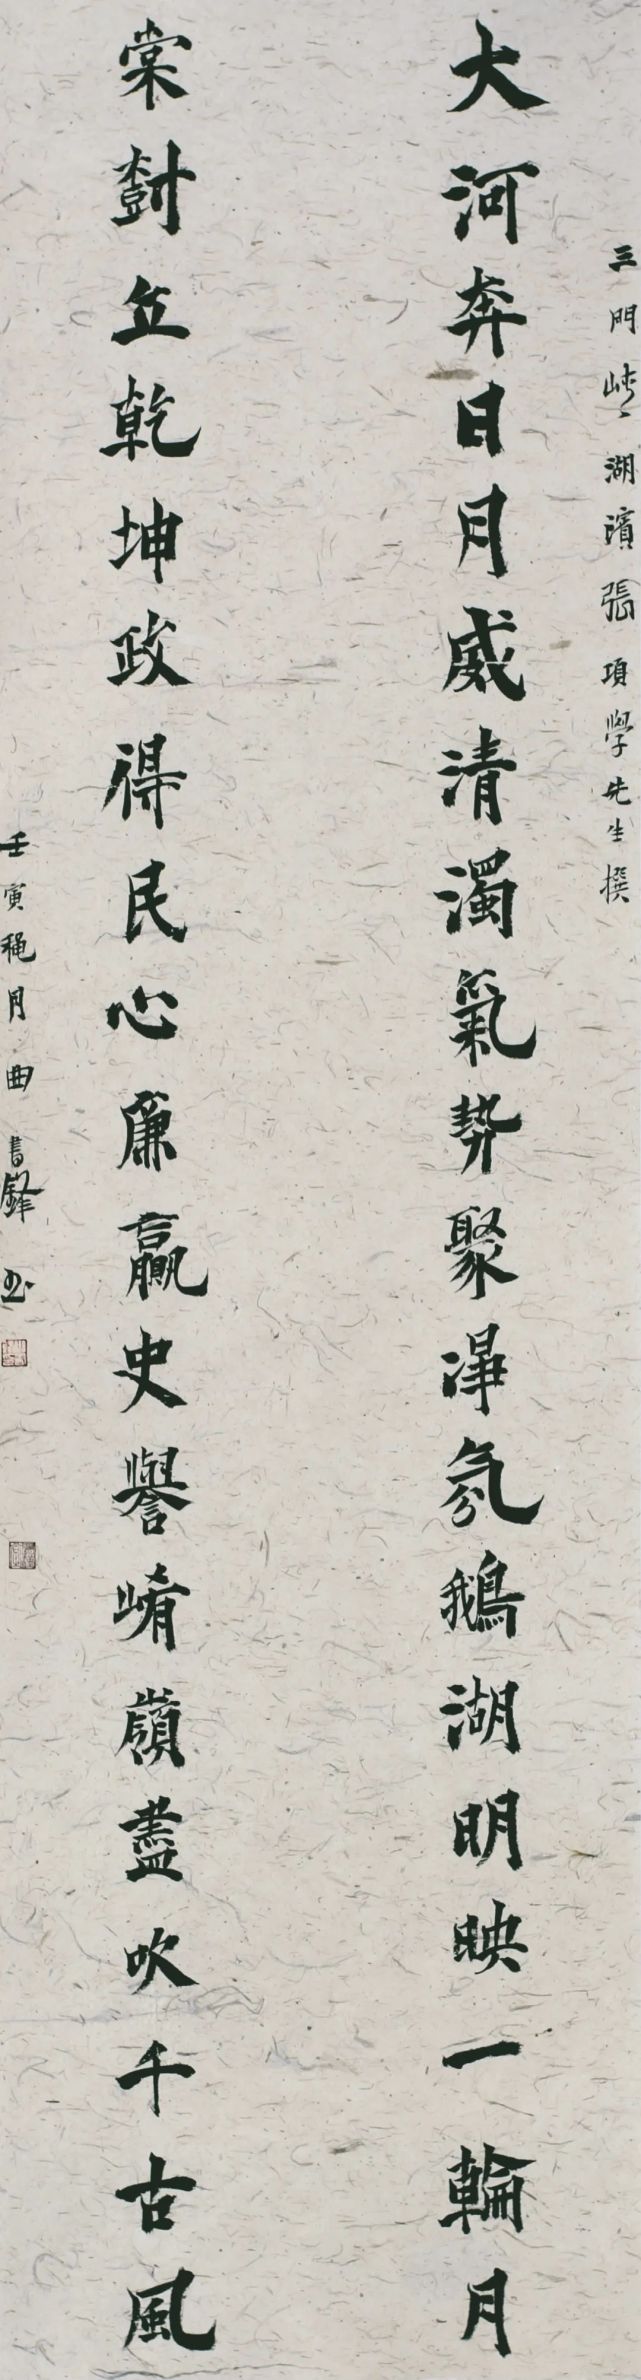 三門峽、湖濱張項學先生撰
大河奔日月威清濁氣勢聚氛鵝湖明映一輪月
棠樹立乾坤政得民心廉贏史譽崤嶺盡吹千古風
壬寅穐月曲書鋒书